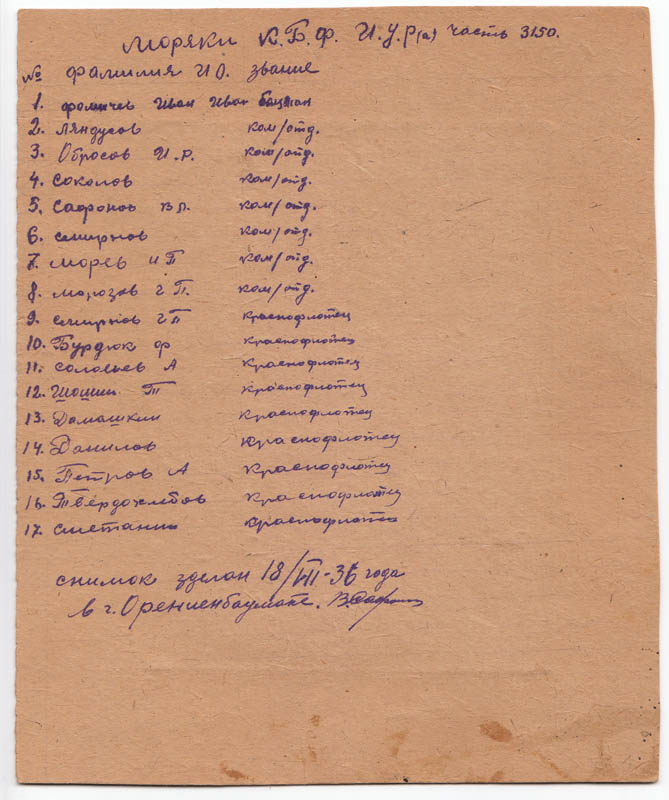 моряки К.Б.Ф. И.У.Р(а) часть 3150.
№ фамилия И О. звание
1. фомичев Иван Иван боцман
2. Ляндусов ком/отд.
3. Обросов И.Р. ком/отд.
4. Соколов ком/отд.
5. Сафонов В П. ком/отд.
6. Смирнов ком/отд.
7. морев и П ком/отд.
8. морозов г П. ком/отд.
9. Смирнов г П краснофлотец
10. Бурдюк ф краснофлотец
11. Соловьев А краснофлотец
12. Шошин Т краснофлотец
13. Дамашкин краснофлотец
14. Данилов краснофлотец
15. Петров А краснофлотец
16. Твердохлебов краснофлотец
17. Сметанин краснофлотец
снимок зделан 18/VIII-36 года
в г. Орениенбаумане. В.Сафонов